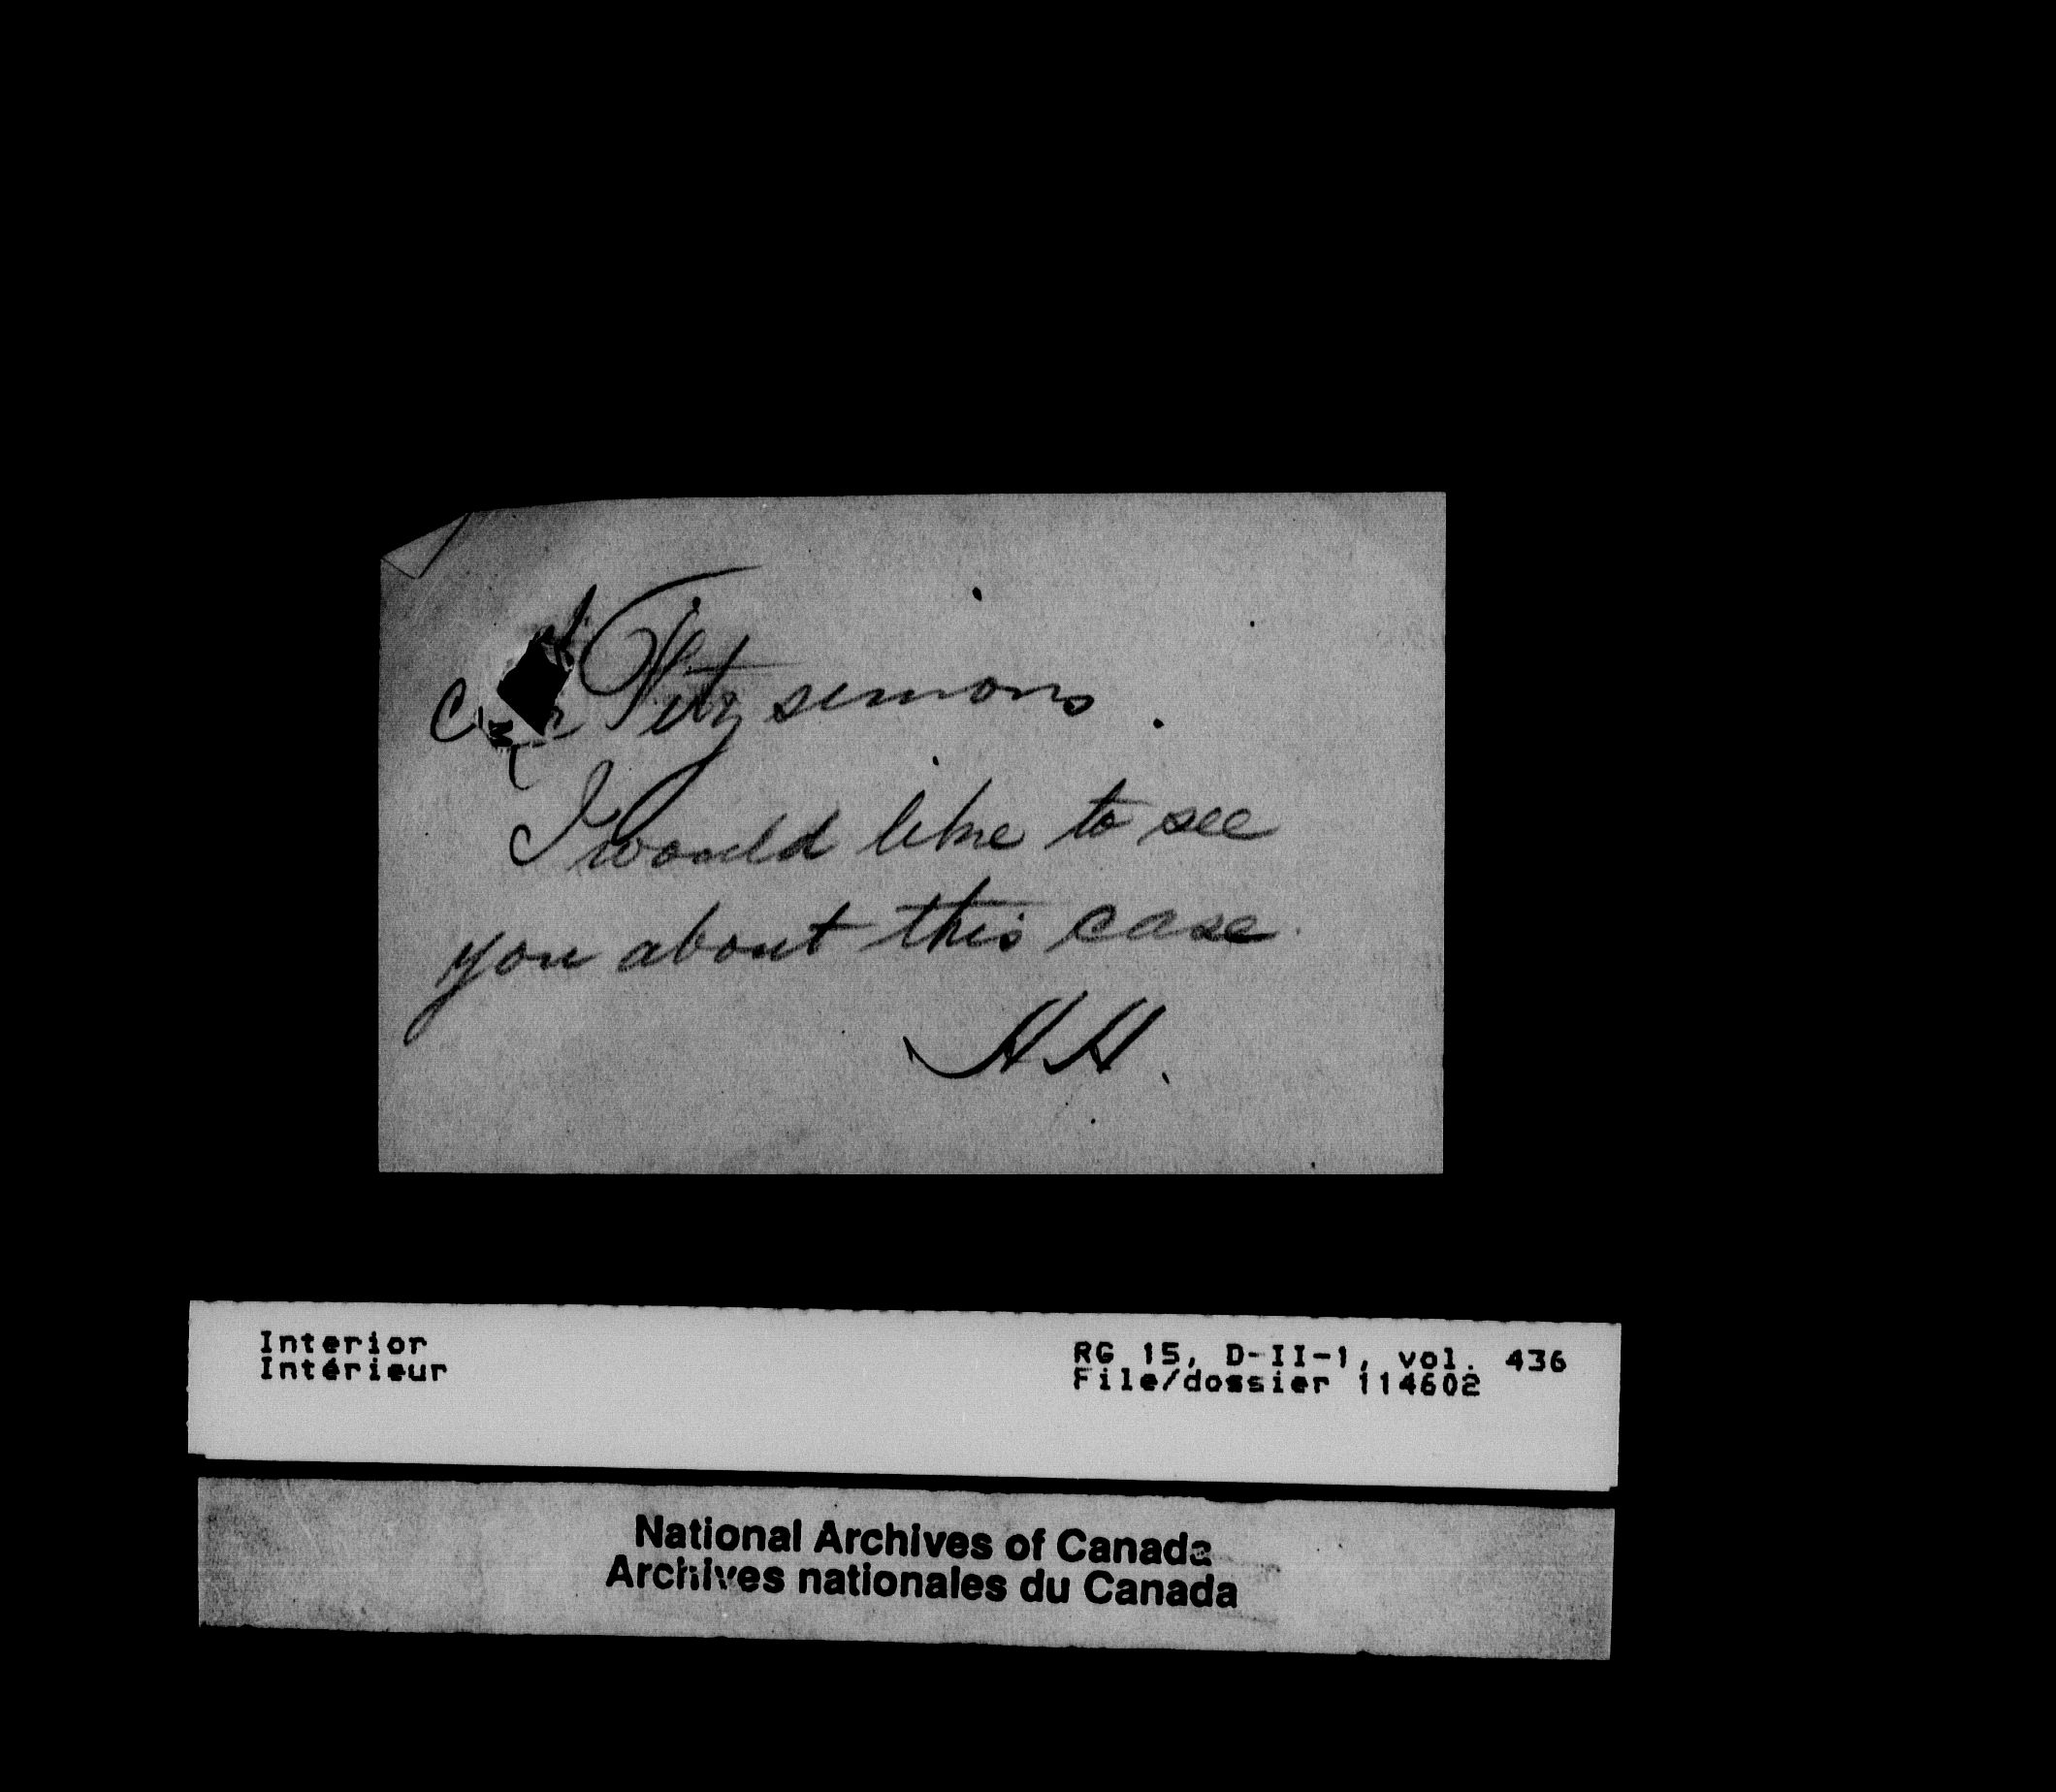 Fitzsimons.
I would like to see
you about this case.
HH.
Interior
Intérieur
RG 15, D-II-1, vol. 436
File/dossier 114602
National Archives of Canada
Archives nationales du Canada